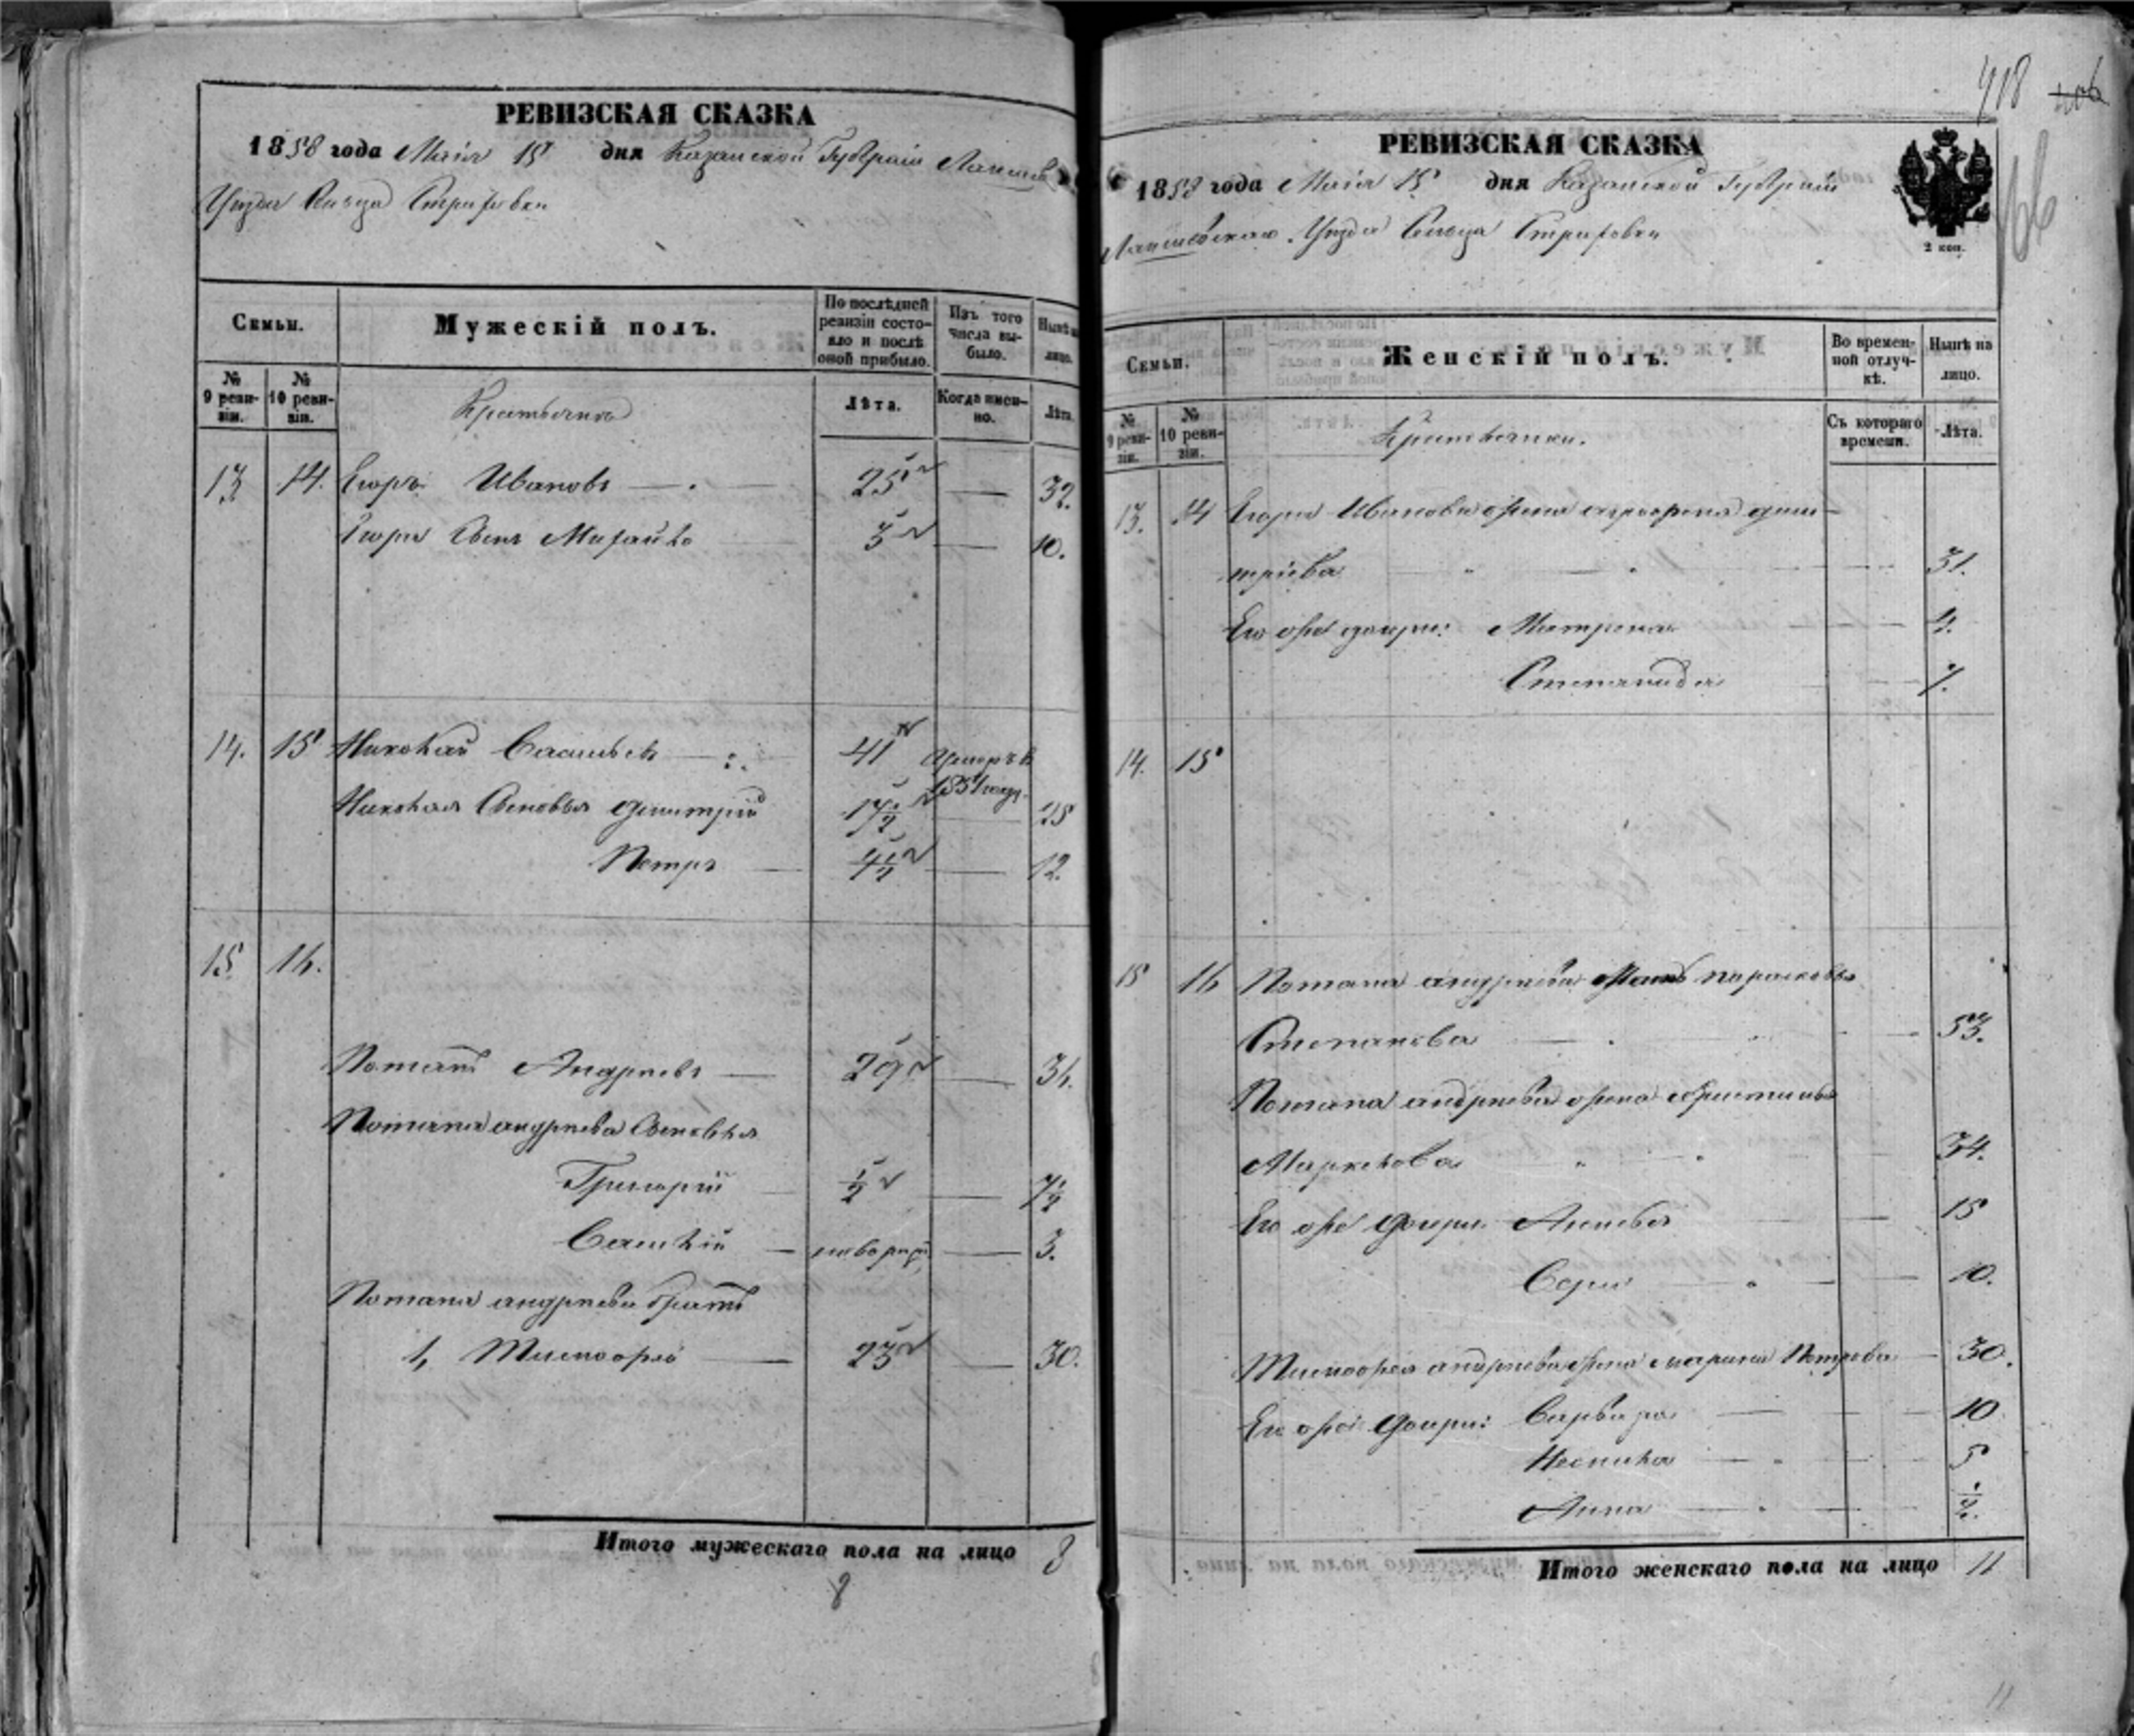 РЕВИЗСКАЯ СКАЗКА
1858 года Маія 15 дня Казанской Губерніи Лаишев
Уѣзда Сельца
Семьи.
Мужескій полъ.
По послѣдней ревизіи состо-
яло и послѣ
оной прибыло.
Изъ того
числа вы-
было.
Нынѣ на
лицо.
№
9 реви-
зіи.
№
10 реви-
зіи.
Крестьяне
Лѣта.
Когда имен-
но.
Лѣта.
13 14. Егоръ Ивановъ — 25 — 32.
Егора Сынъ Михайло 3 — 10.
14. 15 Николай Васильевъ — 41 Умеръ въ
1854 году.
Николая Сыновья Дмитрій 17 1/2 — 25
Петръ — 4 1/2 — 12.
15 16.
Потапъ Андреевъ — 29 — 36.
Потапа андреева Сыновья
Григорій 1/2 — 7 1/2
Василій — новорожд — 3.
Потапа андреева братъ
1, Тимоофей — 23 — 30.
Итого мужескаго пола на лицо 8
8
418 406
РЕВИЗСКАЯ СКАЗКА
1858 года Маія 15 дня Казанской Губерніи
Лаишевскаго Уѣзда Сельца
2 коп.
Семьи.
Женскій полъ.
Во времен-
ной отлуч-
кѣ.
Нынѣ на
лицо.
№
9 реви-
зіи.
№
10 реви-
зіи.
Крестьянки.
Съ котораго
времени.
Лѣта.
13. 14 Егора Иванова жена дми-
тріева 31.
Его же дочери: Матрена 9.
Степанида 7.
14. 15
15 16 Потапа андреева Мать парасковья
Степанова 53.
Потапа андреева жена
Маркелова 34.
Его же дочери 15
10.
Тимоофея андреева жена марина Петрова — 30.
Его же дочери: Варвара — 10
5
Анна 1/2.
Итого женскаго пола на лицо 11
11